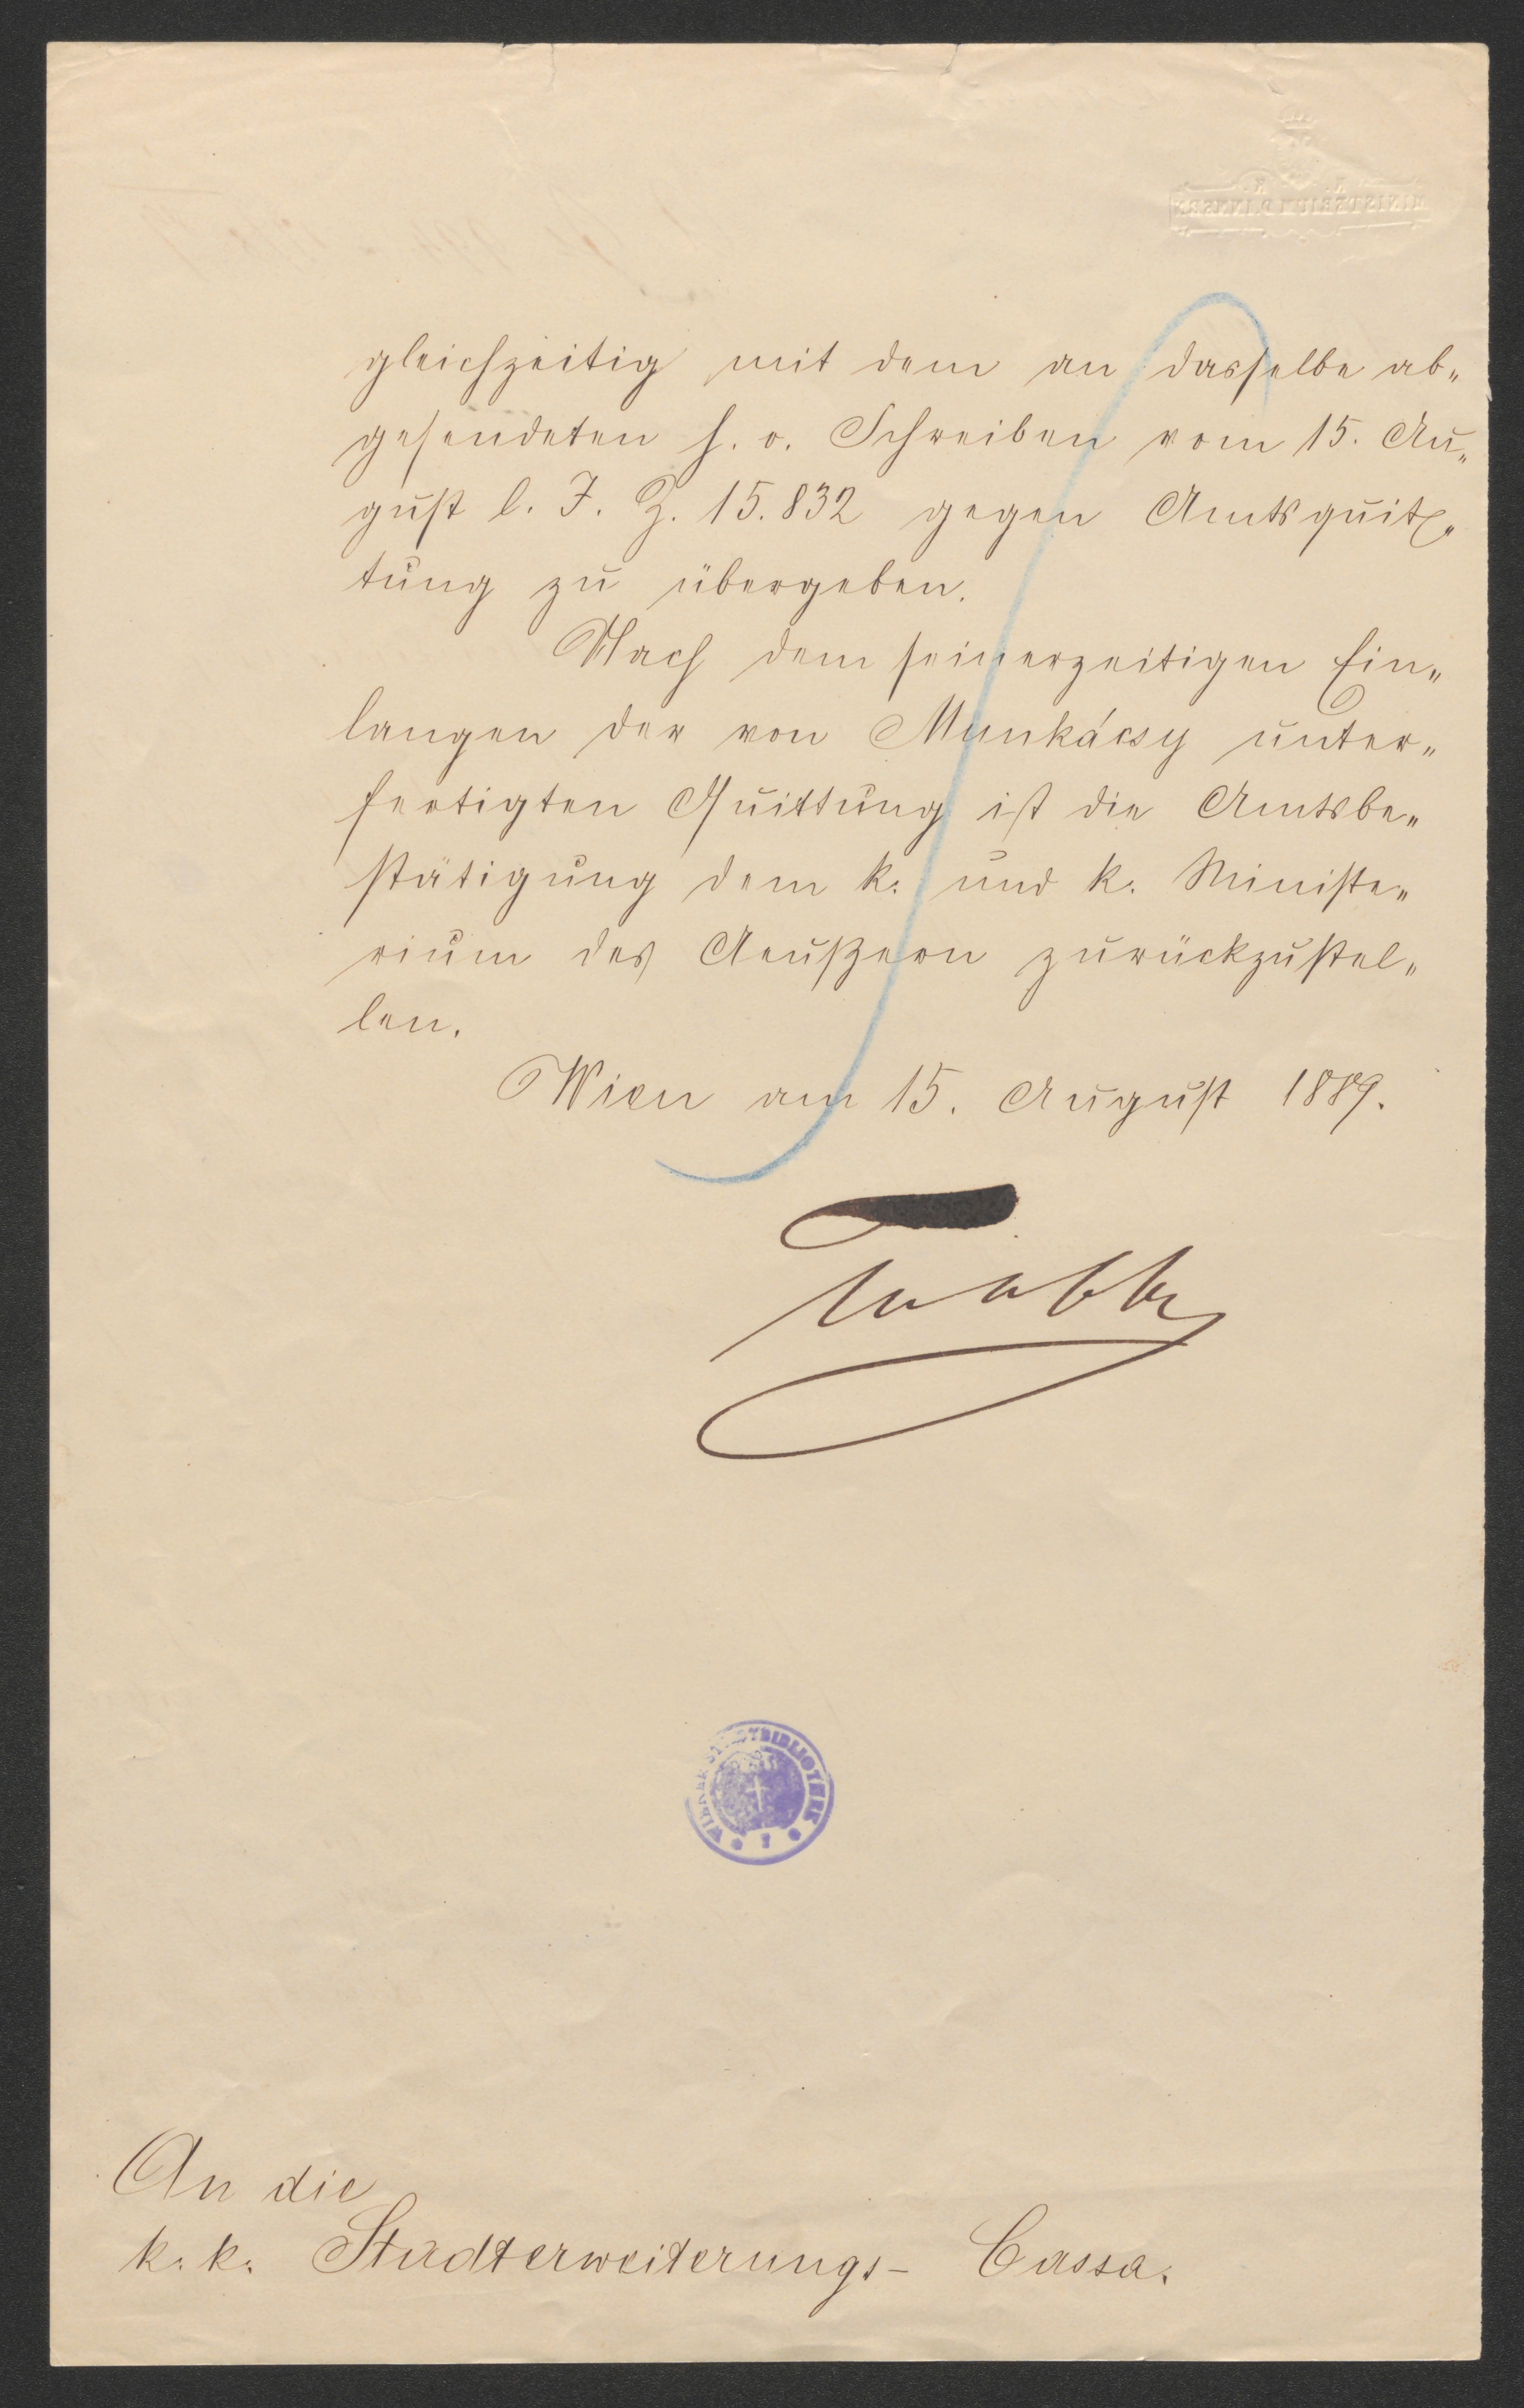 gleichzeitig mit dem an dasselbe ab„
gesendeten h. o. Schreiben vom 15. Au„
gust l. J. Z. 15.832 gegen Amtsquit„
tung zu übergeben.
Nach dem seinerzeitigen Ein„
langen der von Munkácsy unter„
fertigten Quittung ist die Amtsbe„
stätigung dem k. und k. Ministe„
rium des Aeußern zurückzustel„
len.
Wien am 15. August 1889.
Taaffe
WIENER STADTBIBLIOTHEK
An die
k. k. Stadterweiterungs- Cassa.